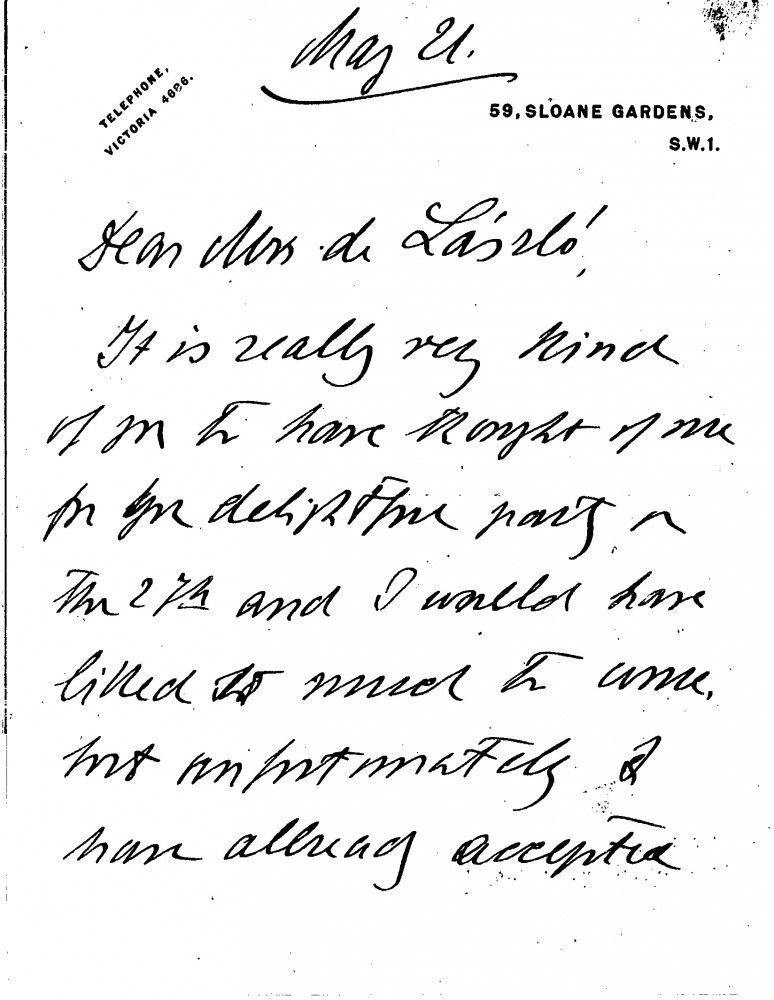 May 21.
TELEPHONE,
VICTORIA 4686.
59, SLOANE GARDENS,
S.W.1.
Dear Mrs de László,
It is really very kind
of you to have thought of me
for your delightful party on
the 27th and I would have
liked so much to come,
but unfortunately I
have allready accepted